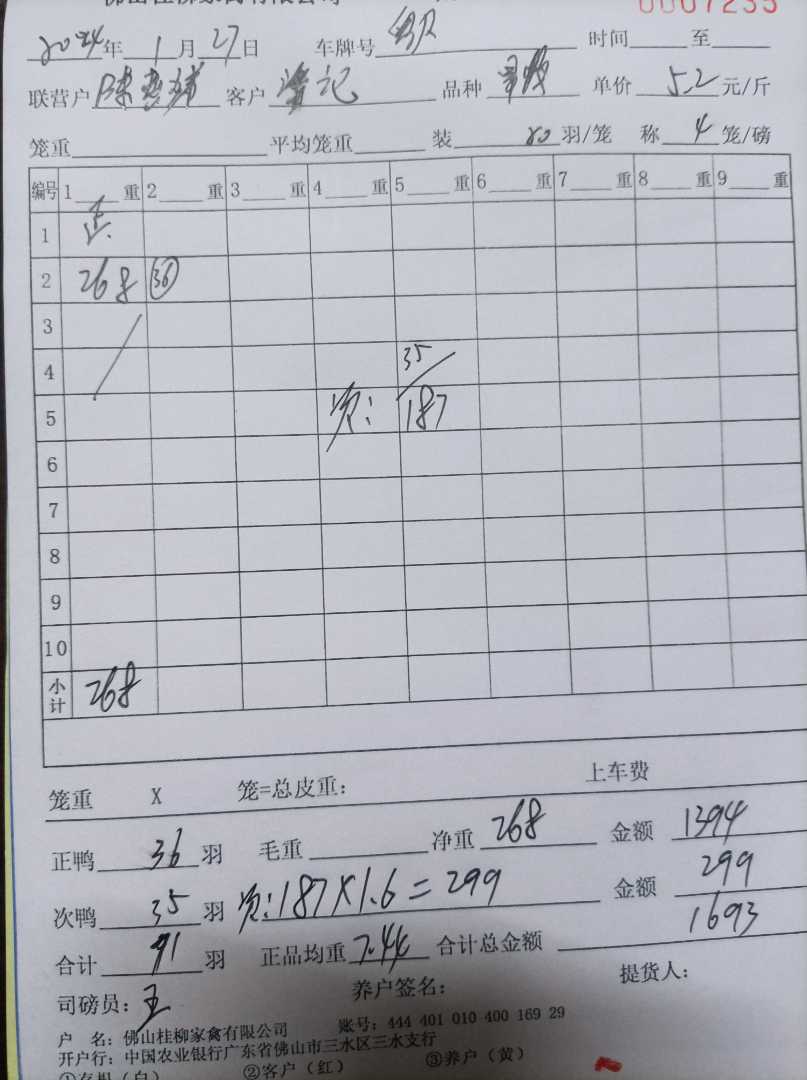 佛山桂柳家禽有限公司 0007235
2024年 1月27日 车牌号 时间 至
联营户 陈 客户 记 品种 单价 5.2 元/斤
笼重 平均笼重 装 20 羽/笼 称 4 笼/磅
编号 1 重 2 重 3 重 4 重 5 重 6 重 7 重 8 重 9 重
1 正
2 268 36
3
4 35
5 次: 187
6
7
8
9
10
小计 268
笼重 X 笼=总皮重: 上车费
正鸭 36 羽 毛重 净重 268 金额 1394
次鸭 35 羽 次:187×1.6=299 金额 299
合计 71 羽 正品均重 7.44 合计总金额 1693
司磅员: 王 养户签名: 提货人:
户 名: 佛山桂柳家禽有限公司 账号: 444 401 010 400 169 29
开户行: 中国农业银行广东省佛山市三水区三水支行
①存根(白) ②客户(红) ③养户(黄)